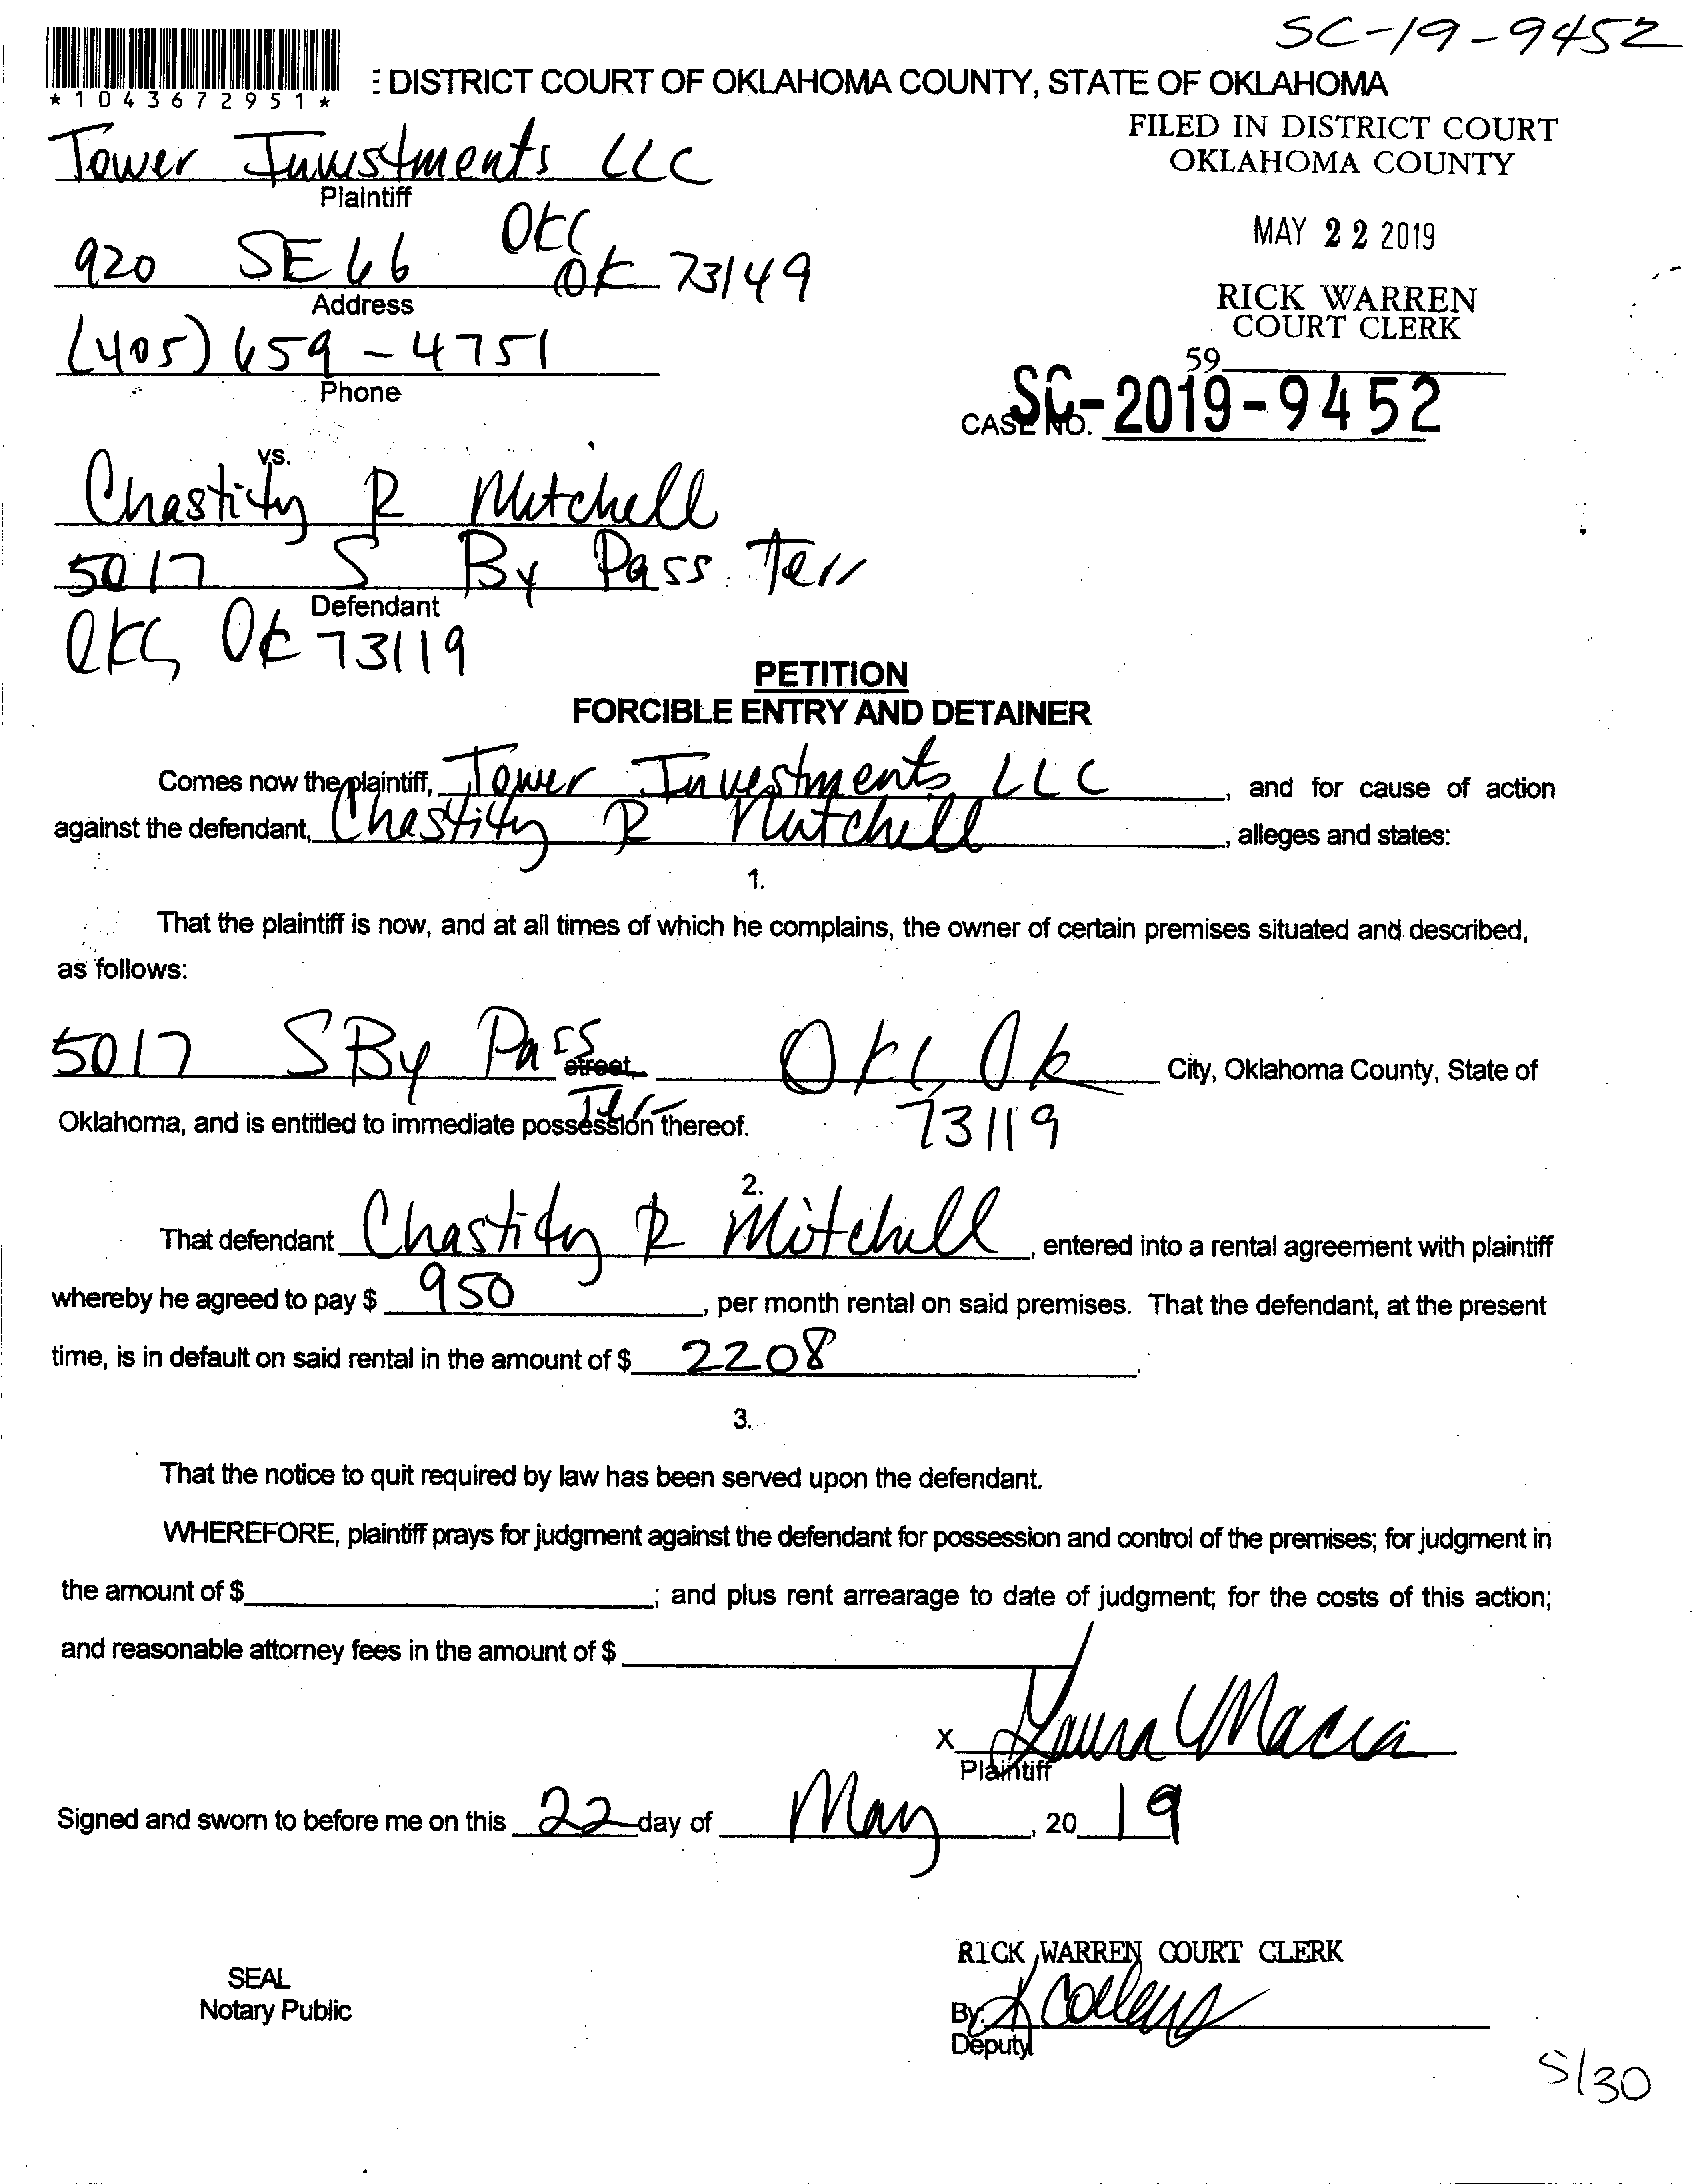 SC-19-9452
*1043672951*
E DISTRICT COURT OF OKLAHOMA COUNTY, STATE OF OKLAHOMA
FILED IN DISTRICT COURT
OKLAHOMA COUNTY
Tower Investments LLC
Plaintiff
MAY 22 2019
920 SE 66 OKC OK 73149
Address
RICK WARREN
COURT CLERK
(405) 659-4751
Phone
59
CASE NO. SC-2019-9452
vs.
Chastity R Mitchell
5017 S By Pass Terr
Defendant
OKC, OK 73119
PETITION
FORCIBLE ENTRY AND DETAINER
Comes now the plaintiff, Tower Investments LLC, and for cause of action
against the defendant, Chastity R Mitchell, alleges and states:
1.
That the plaintiff is now, and at all times of which he complains, the owner of certain premises situated and described,
as follows:
5017 S By Pass street OKC, Ok City, Oklahoma County, State of
Terr 73119
Oklahoma, and is entitled to immediate possession thereof.
2.
That defendant Chastity R Mitchell, entered into a rental agreement with plaintiff
whereby he agreed to pay $ 950, per month rental on said premises. That the defendant, at the present
time, is in default on said rental in the amount of $ 2208.
3.
That the notice to quit required by law has been served upon the defendant.
WHEREFORE, plaintiff prays for judgment against the defendant for possession and control of the premises; for judgment in
the amount of $ ; and plus rent arrearage to date of judgment; for the costs of this action;
and reasonable attorney fees in the amount of $
x Laura Macia
Plaintiff
Signed and sworn to before me on this 22 day of May, 2019
RICK WARREN COURT CLERK
SEAL
Notary Public
By:
Deputy
5/30